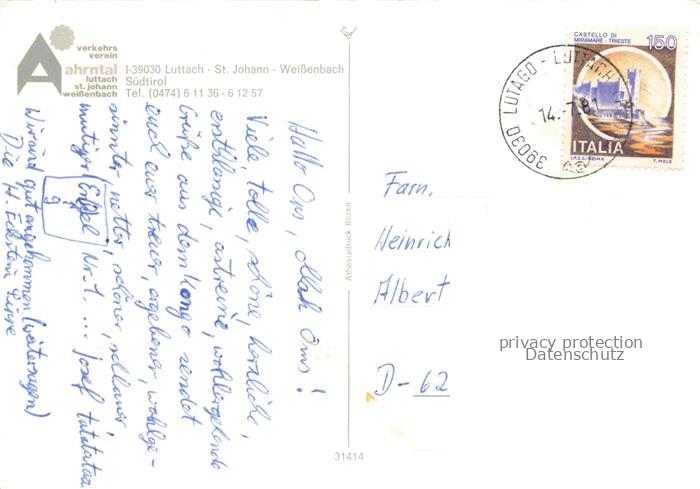 verkehrs
verein
ahrntal
luttach
st. johann
weißenbach
I-39030 Luttach - St. Johann - Weißenbach
Südtirol
Tel. (0474) 6 11 36 - 6 12 57
Hallo Oms, !
Viele, tolle, schöne, herzliche,
erstklassige, astreine, wohlergehende
Grüße aus dem Kongo sendet
euch euer treuer, ergebener, wohlge-
sinnter, netter, schöner, schlauer,
mutiger Enkel Nr. 1. ... Josef tatatataa
g
Wir sind gut angekommen (weitersagen)
Die H. Sippe
Athesiadruck Bozen
31414
CASTELLO DI
MIRAMARE - TRIESTE
150
ITALIA
I.P.Z.S. - ROMA
T. MELE
39030 LUTAGO - LUTTACH
14.-7.81
Fam.
Heinrich
Albert
D-62
privacy protection
Datenschutz